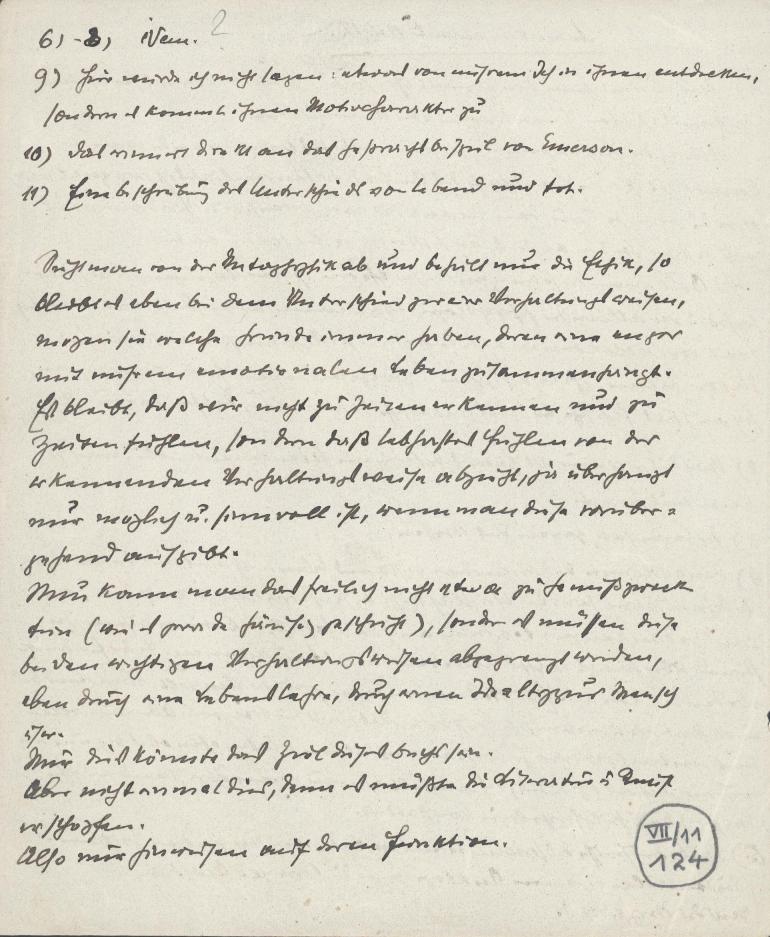 6) - 8) Nem. 2
9) Hier würde ich nicht sagen: etwas von unsrem Ich in ihnen entdecken,
sondern es kommt ihnen Motivcharakter zu
10) Das erinnert direkt an das Gesprächsbeispiel von Emerson.
11) Eine Beschreibung des Unterschieds von lebend und tot.
Sieht man von der Metaphysik ab und behält nur die Ethik, so
bleibt es eben bei dem Unterschied zweier Verhaltungsweisen,
mögen sie welche Gründe immer haben, deren eine enger
mit unsrem emotionalen Leben zusammenhängt.
Es bleibt, daß wir nicht zu Zeiten erkennen und zu
Zeiten fühlen, sondern daß lebhaftes Fühlen von der
erkennenden Verhaltungsweise abzieht, ja überhaupt
nur möglich u. sinnvoll ist, wenn man diese vorüber=
gehend aufgibt.
Nun kann man das freilich nicht etwa zu Genußzwecken
tun (wie es gerade häufig geschieht), sondern es müssen diese
beiden wichtigen Verhaltungsweisen abgegrenzt werden,
eben durch eine Lebenslehre, durch einen Idealtypus Mensch
Nur dies könnte das Ziel dieses Buchs sein.
Aber nicht einmal dies, denn es müßte die Literatur u Kunst
erschöpfen.
Also nur hinweisen auf deren Funktion.
VII/11
124